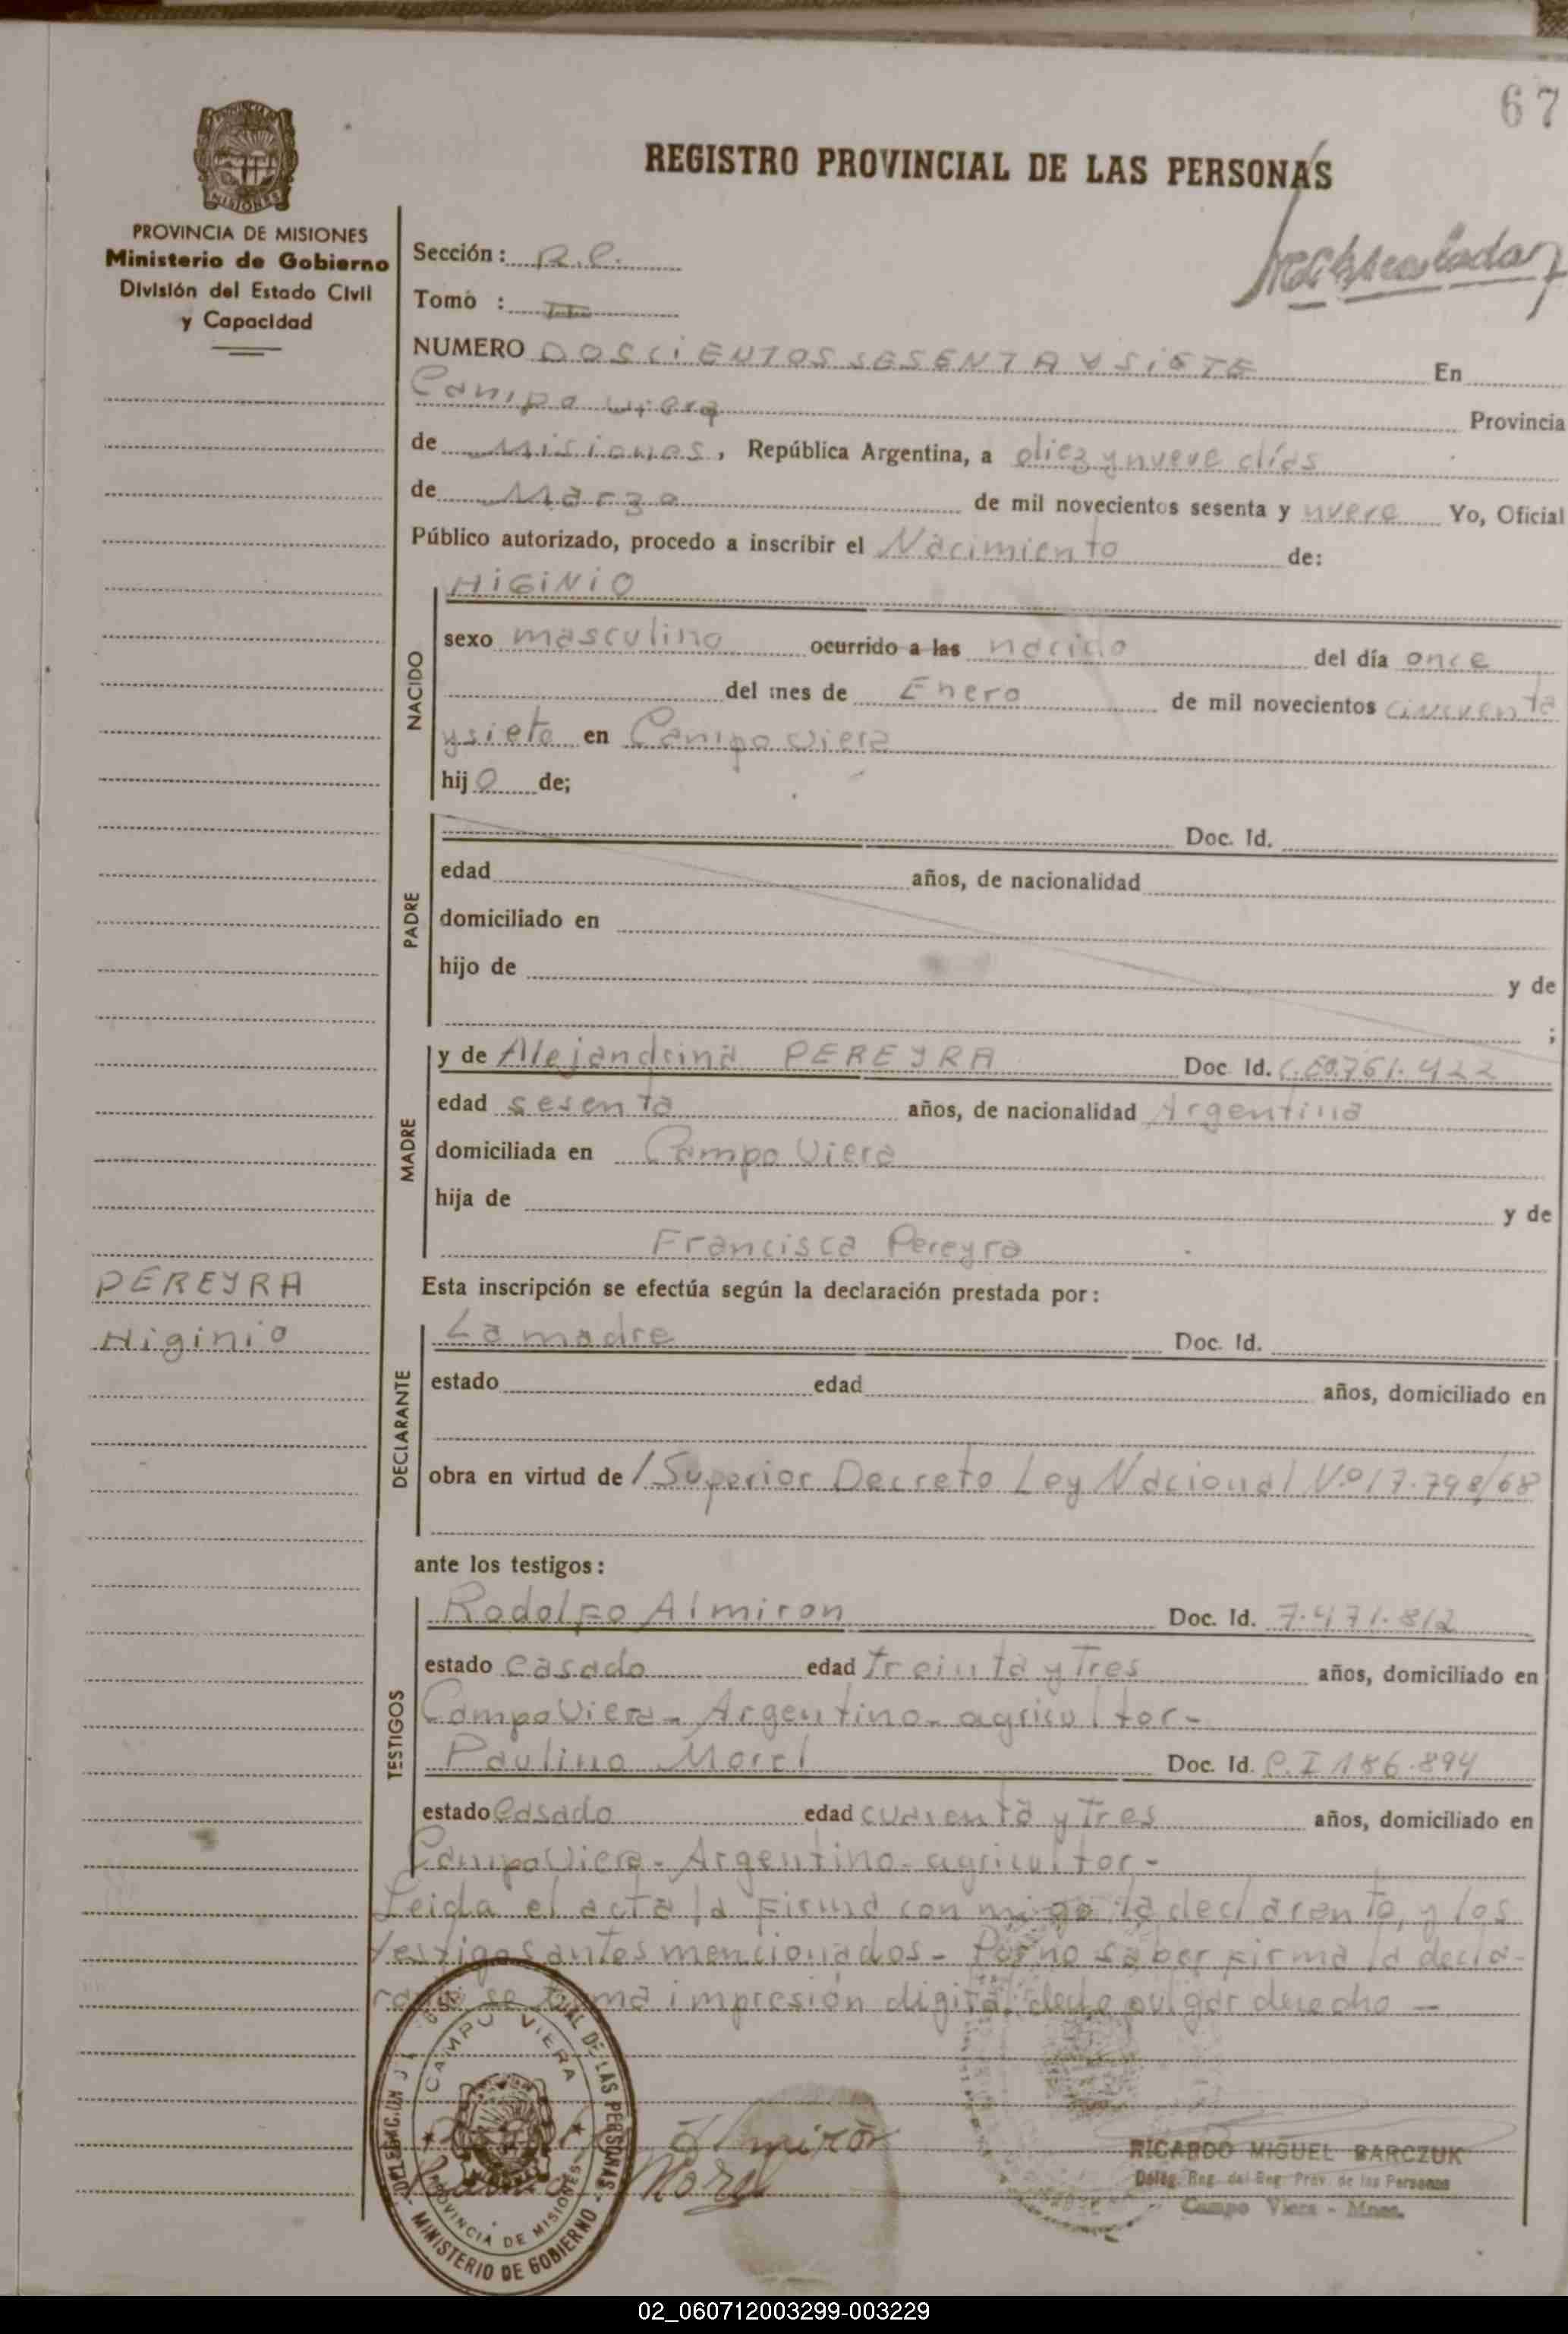 67
REGISTRO PROVINCIAL DE LAS PERSONAS
PROVINCIA DE MISIONES
Ministerio de Gobierno
División del Estado Civil
y Capacidad
Sección: R.C.
Tomo :
NUMERO DOSCIENTOS SESENTA Y SIETE En
Campo Viera Provincia
de Misiones, República Argentina, a diez y nueve días
de Marzo de mil novecientos sesenta y nueve Yo, Oficial
Público autorizado, procedo a inscribir el Nacimiento de:
NACIDO
HIGINIO
sexo masculino ocurrido a las nacido del día once
del mes de Enero de mil novecientos cincuenta
y siete en Campo Viera
hijo de;
PADRE
Doc. Id.
edad años, de nacionalidad
domiciliado en
hijo de y de
;
MADRE
y de Alejandrina PEREYRA Doc Id. C. 761.422
edad sesenta años, de nacionalidad Argentina
domiciliada en Campo Viera
hija de y de
Francisca Pereyra
PEREYRA
Higinio
Esta inscripción se efectúa según la declaración prestada por:
DECLARANTE
La madre Doc. Id.
estado edad años, domiciliado en
obra en virtud de / Superior Decreto Ley Nacional Nº 17.798/68
ante los testigos:
TESTIGOS
Rodolfo Almiron Doc. Id. 7.471.812
estado Casado edad treinta y Tres años, domiciliado en
Campo Viera - Argentino - agricultor -
Paulino Morel Doc. Id. C.I 186.894
estado Casado edad cuarenta y Tres años, domiciliado en
Campo Viera - Argentino - agricultor -
Leida el acta la firma con migo la declarente, y los
testigos antes mencionados - Por no saber firma la decla-
rante se toma impresión digital de pulgar derecho -
CAMPO VIERA
DE LAS PERSONAS
PROVINCIA DE MISIONES
MINISTERIO DE GOBIERNO
Almirón
Morel
RICARDO MIGUEL BARCZUK
Deleg. Reg. del Reg. Prov. de las Personas
Campo Viera - Mnes.
02_060712003299-003229